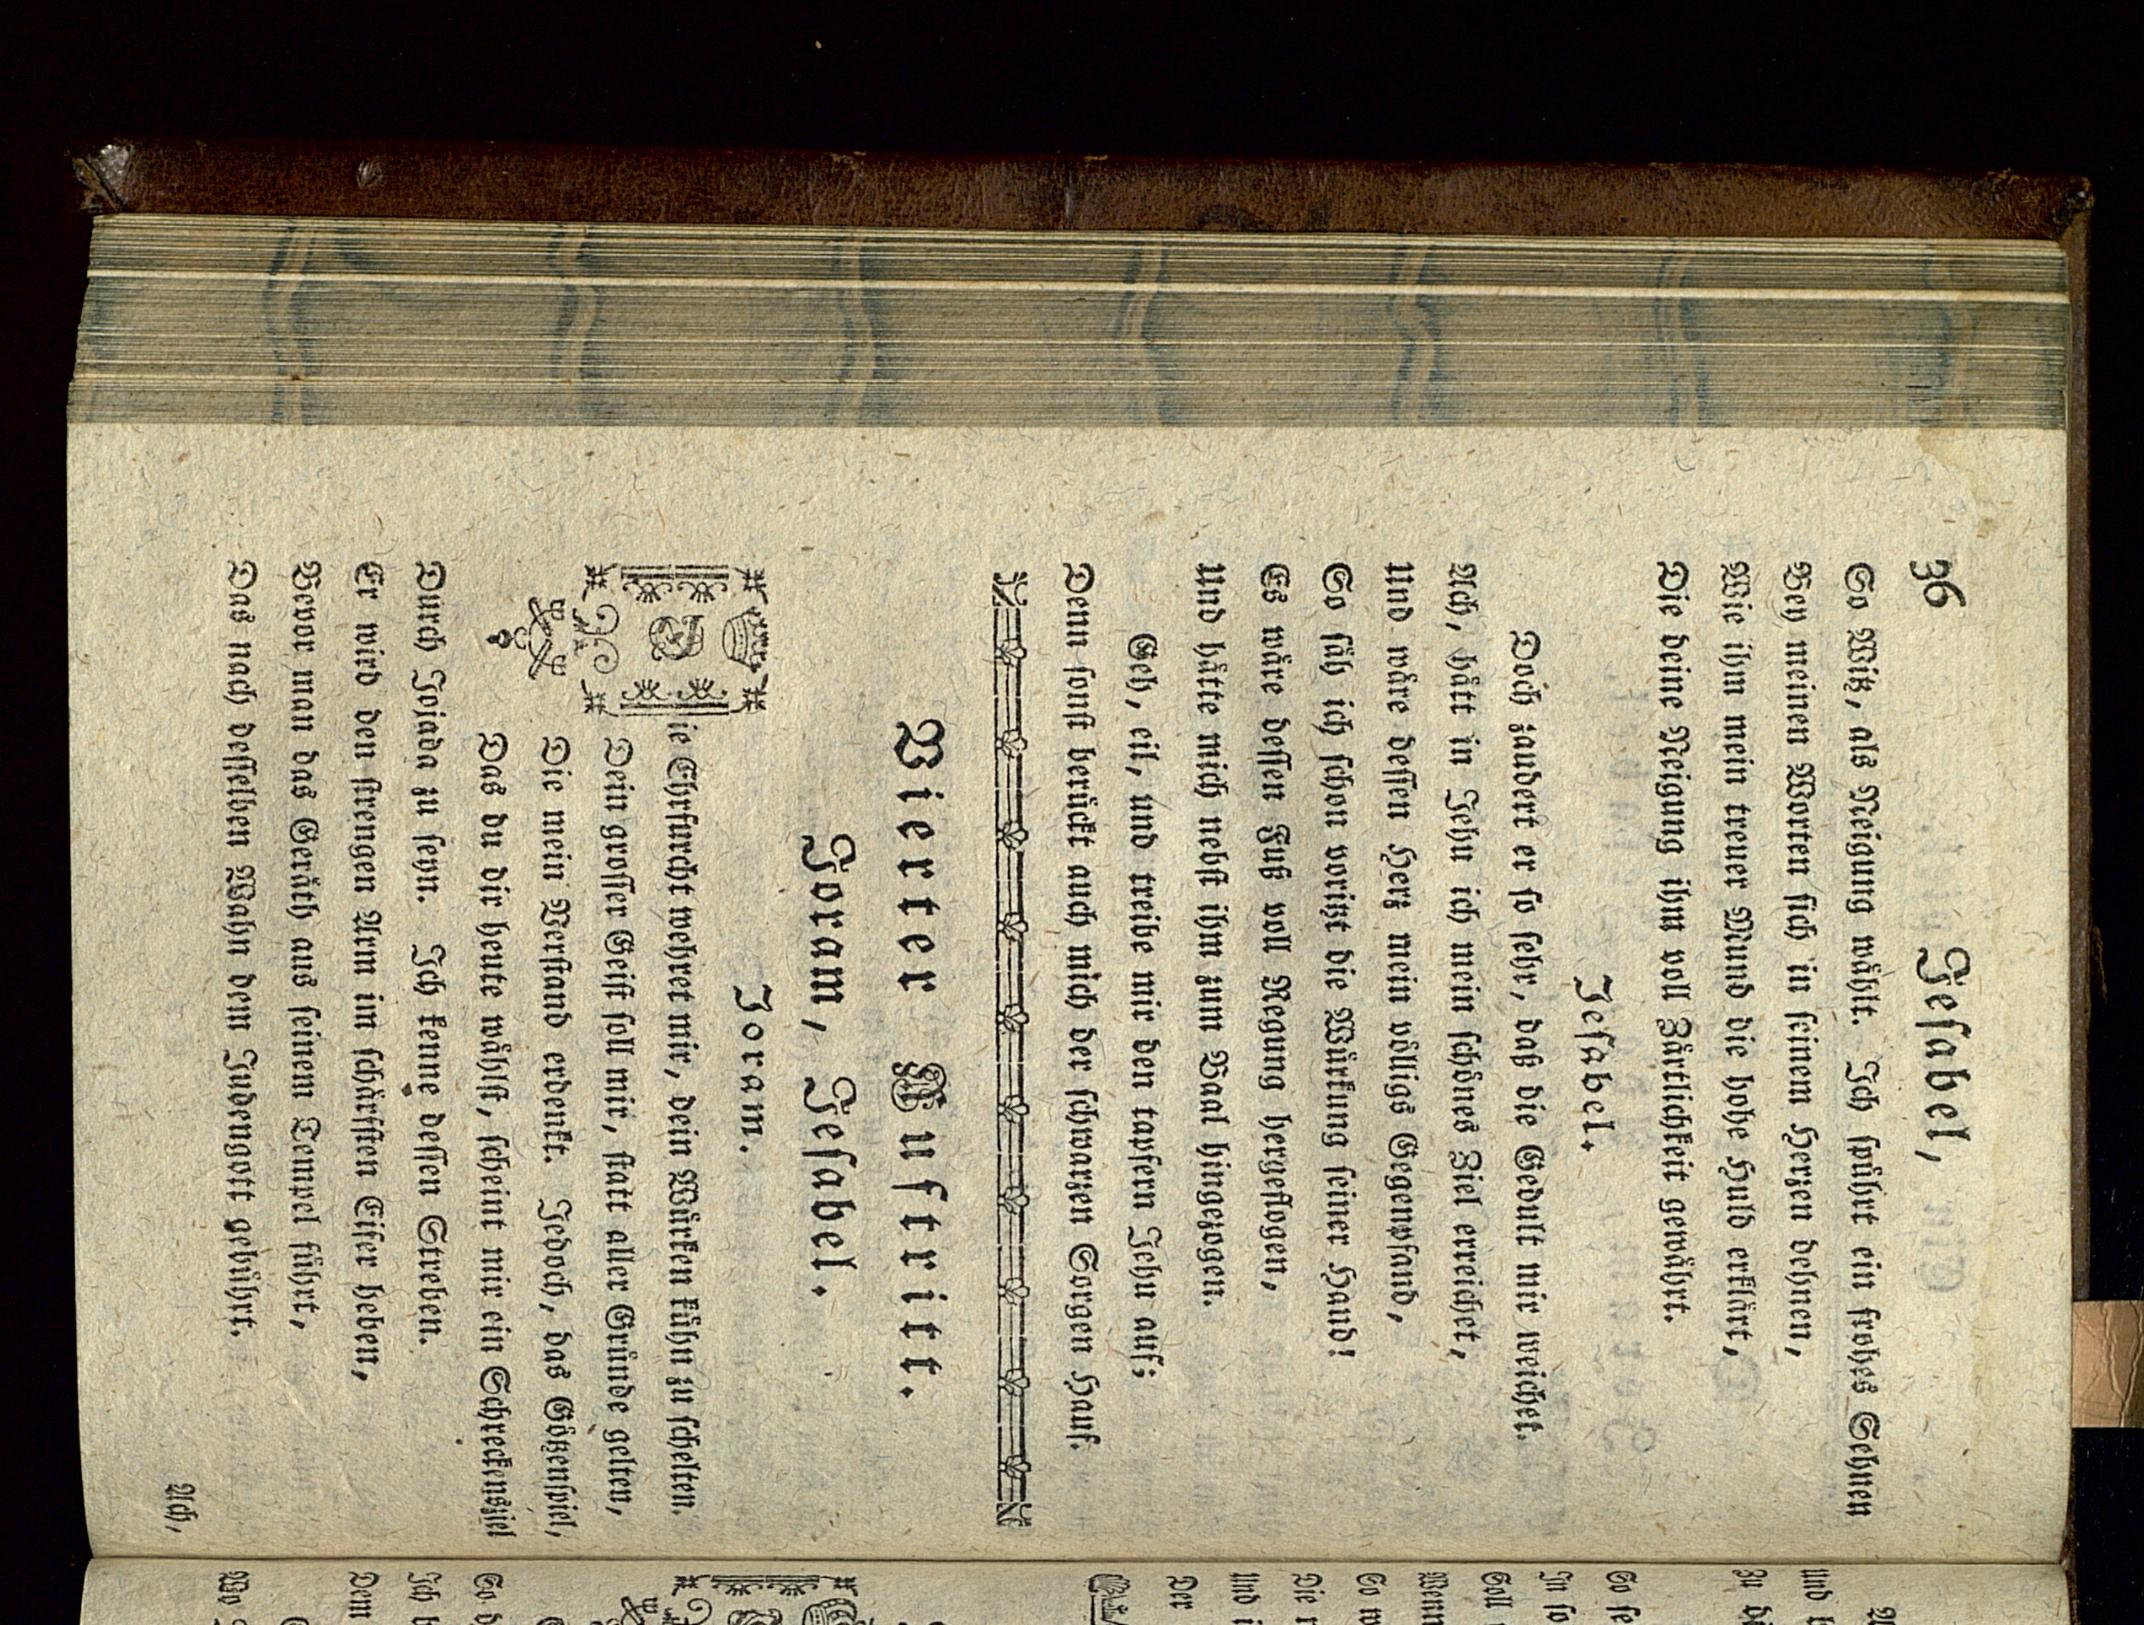 36 Jeſabel,
So Witz, als Neigung wählt. Ich ſpühret ein frohes Sehnen
Bey meinen Worten ſich in ſeinem Herzen dehnen,
Wie ihm mein treuer Mund die hohe Huld erklärt,
Die deine Neigung ihm voll Zärtlichkeit gewährt.
Jeſabel.
Doch zaudert er ſo ſehr, daß die Gedult mir weichet.
Ach, hätt in Jehu ich mein ſchönes Ziel erreichet,
Und wäre deſſen Herz mein völligs Gegenpfand,
So ſäh ich ſchon voritzt die Würkung ſeiner Hand!
Es wäre deſſen Fuß voll Regung hergeflogen,
Und hätte mich nebſt ihm zum Baal hingezogen.
Geh, eil, und treibe mir den tapfern Jehu auf;
Denn ſonſt berückt auch mich der ſchwarzen Sorgen Hauf.
Vierter Auftritt.
Joram, Jeſabel.
Joram.
Die Ehrfurcht wehret mir, dein Würken kühn zu ſchelten.
Dein groſſer Geiſt ſoll mir, ſtatt aller Gründe gelten,
Die mein Verſtand erdenkt. Jedoch, das Götzenſpiel,
Das du dir heute wählſt, ſcheint mir ein Schreckensziel
Durch Jojada zu ſeyn. Ich kenne deſſen Streben.
Er wird den ſtrengen Arm im ſchärfſten Eifer heben,
Bevor man das Geräth aus ſeinem Tempel führt,
Das nach deſſelben Wahn dem Judengott gebührt.
Ach,
Und
Zu
So ſe
In ſo
Soll
Wenn
So w
Die
Und i
Der
So d
Ich
Dem
Wo